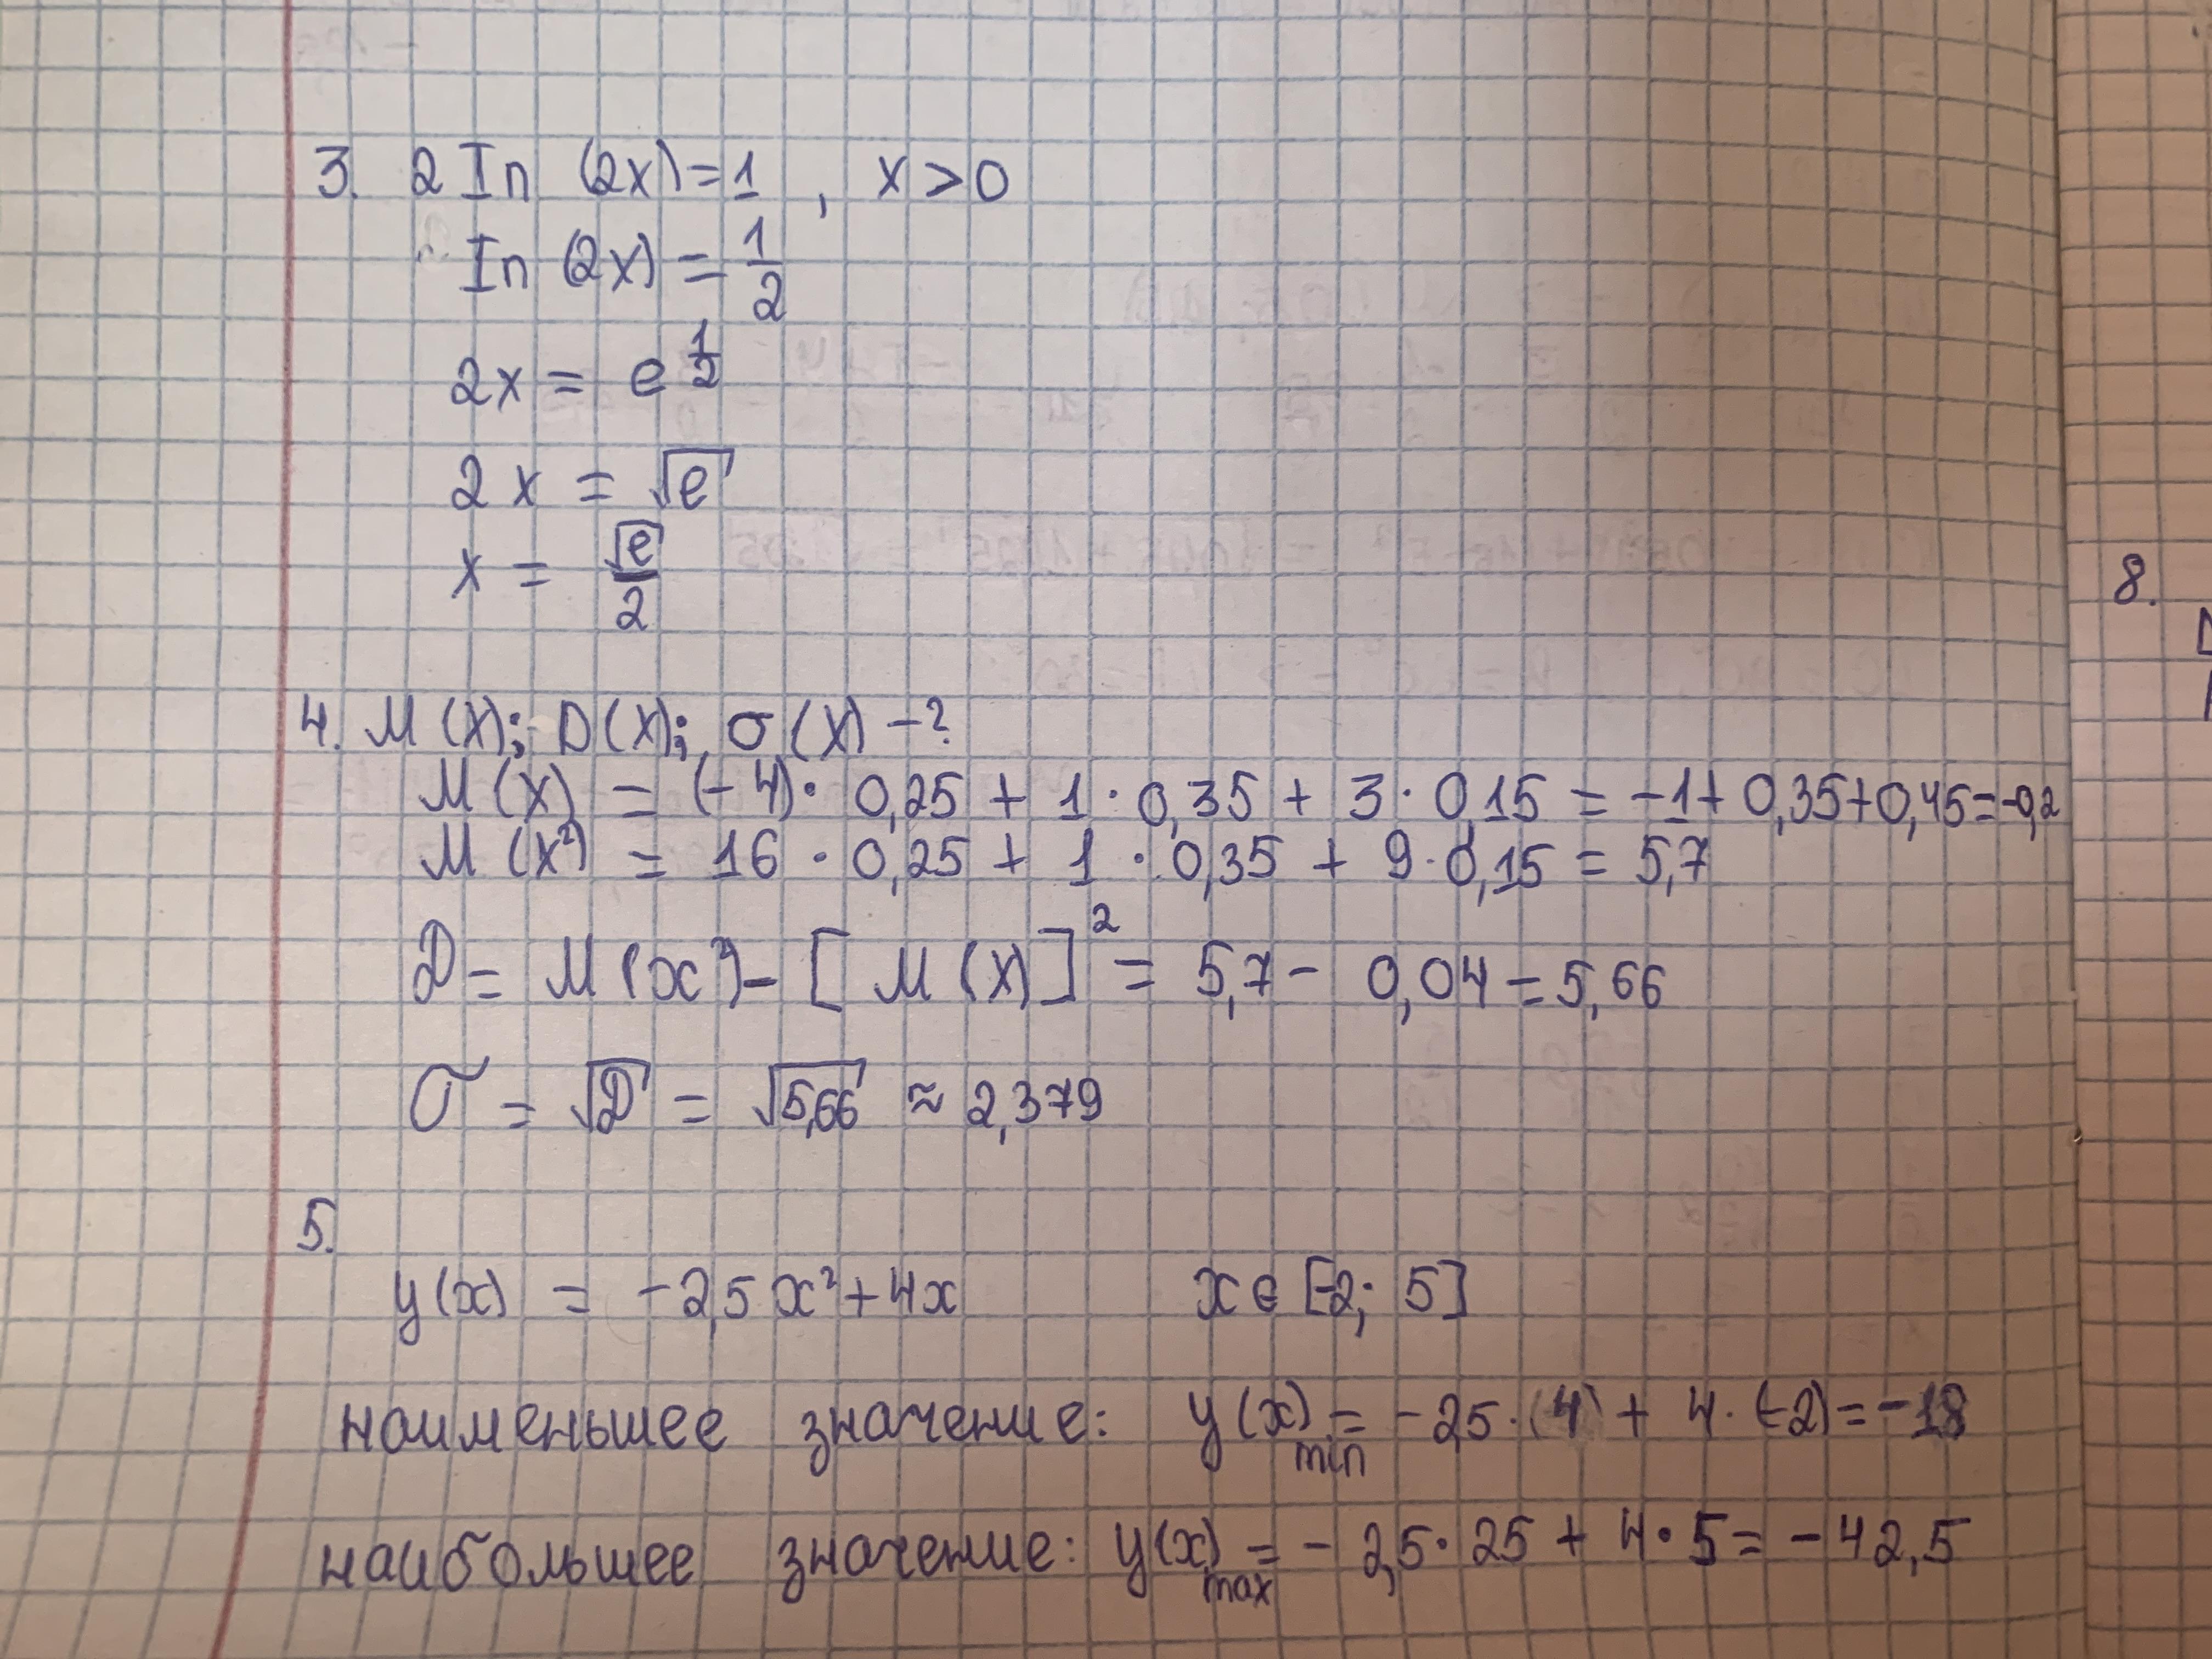 3. 2 In (2x) = 1 , x > 0
In (2x) = 1/2
2x = e^(1/2)
2x = √e
x = √e/2
4. M(X); D(X); σ(X) - ?
M(X) = (-4)· 0,25 + 1 · 0,35 + 3 · 0,15 = -1 + 0,35 + 0,45 = -0,2
M(X²) = 16 · 0,25 + 1 · 0,35 + 9 · 0,15 = 5,7
D = M(x²) - [M(X)]² = 5,7 - 0,04 = 5,66
σ = √D = √5,66 ≈ 2,379
5.
y(x) = -2,5x² + 4x x ∈ [-2; 5]
наименьшее значение: y(x) min = -2,5 · (4) + 4 · (-2) = -18
наибольшее значение: y(x) max = - 2,5 · 25 + 4 · 5 = - 42,5
8.